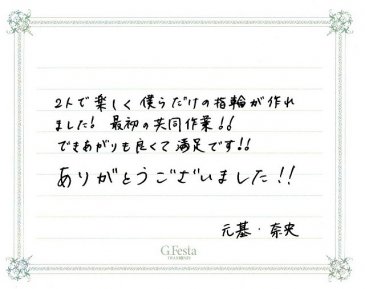 2人で楽しく僕らだけの指輪が作れ
ました! 最初の共同作業!!
できあがりも良くて満足です!!
ありがとうございました!!
元基・奈央
G.Festa